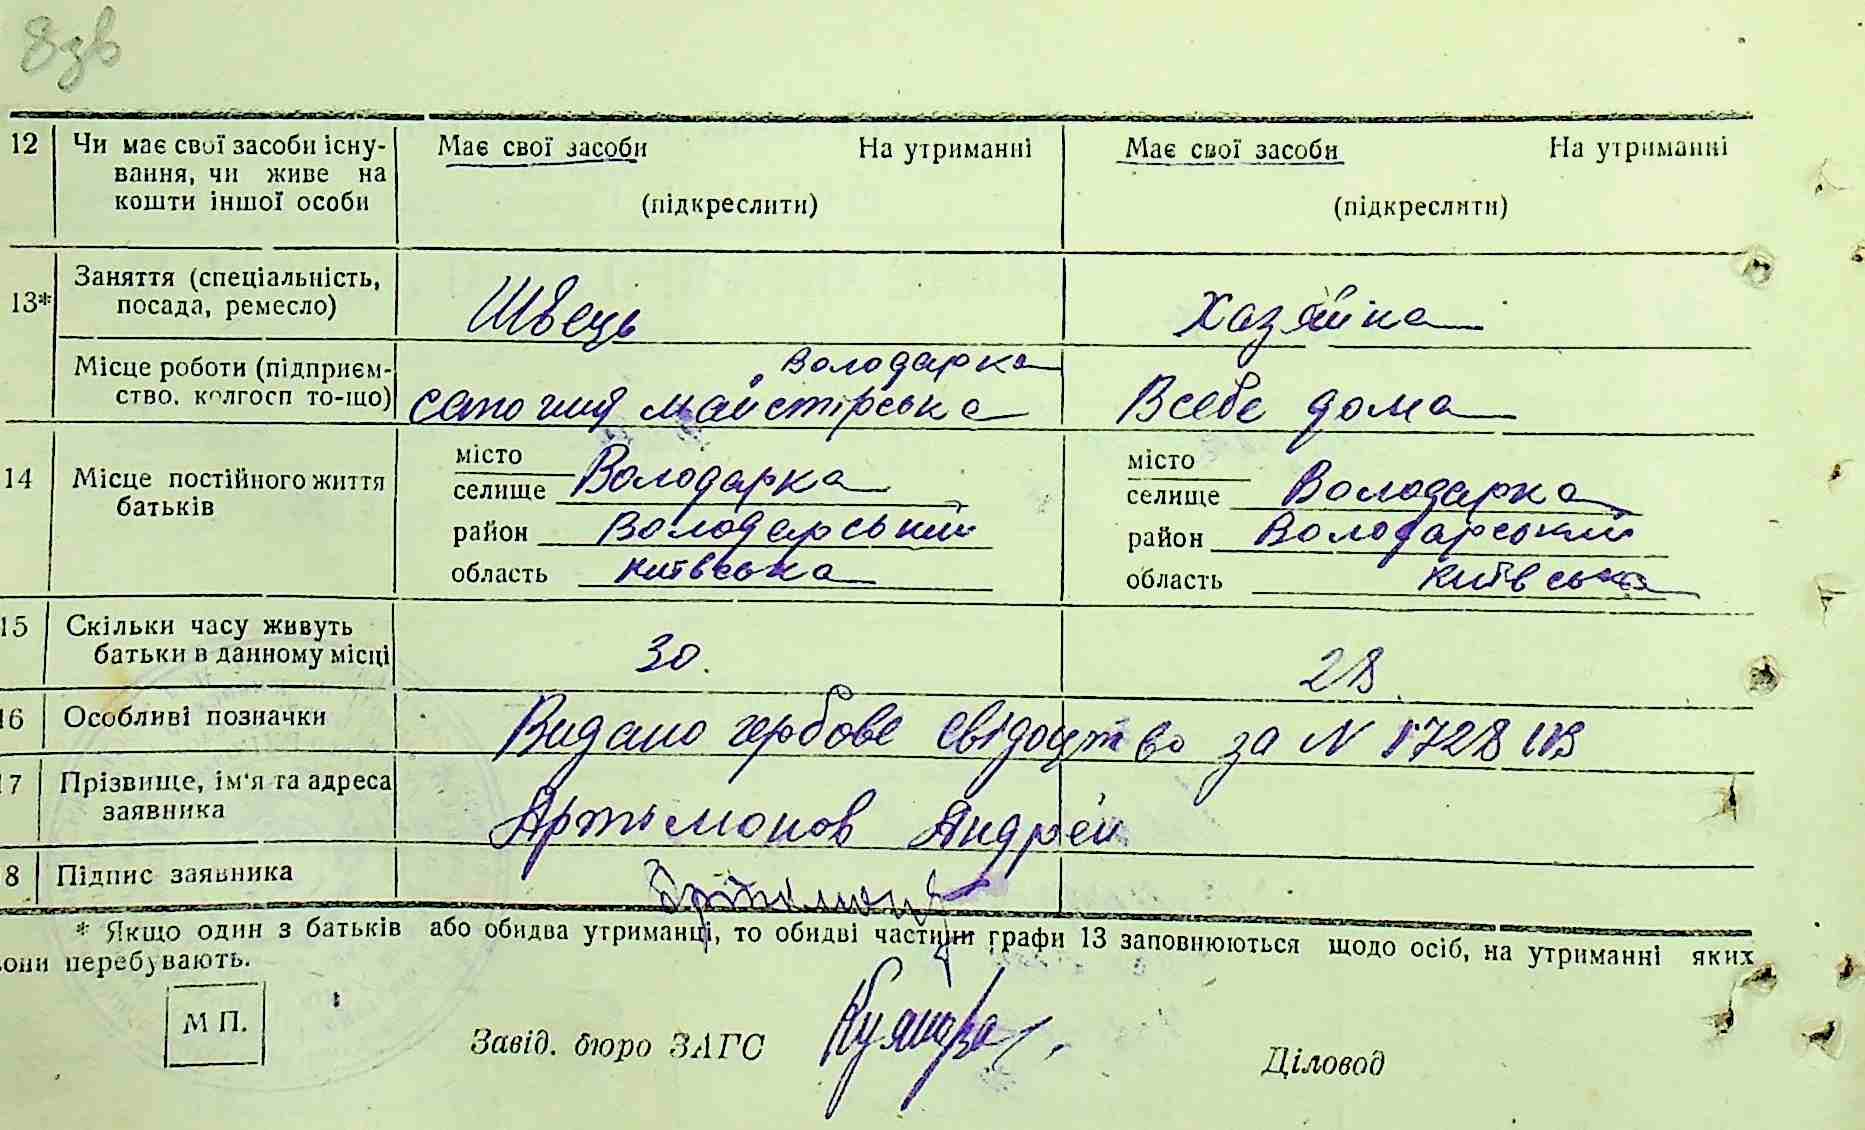 8зв
12 Чи має свої засоби існу- Має свої засоби На утриманні Має свої засоби На утриманні
вання, чи живе на
кошти іншої особи (підкреслити) (підкреслити)
13* Заняття (спеціальність,
посада, ремесло) Швець Хазяйка
Володарка
Місце роботи (підприєм-
ство, колгосп то-що) сапожня майстірська Всебе дома
14 Місце постійного життя
батьків
місто місто
селище Володарка селище Володарка
район Володарський район Володарський
область Київська область Київська
15 Скільки часу живуть
батьки в данному місці 30. 28.
16 Особливі позначки Видано гербове свідоцтво за N
17 Прізвище, ім'я та адреса
заявника Артімонов Андрей
8 Підпис заявника
* Якщо один з батьків або обидва утриманці, то обидві частини графи 13 заповнюються щодо осіб, на утриманні яких
вони перебувають.
М П.
Завід. бюро ЗАГС Діловод